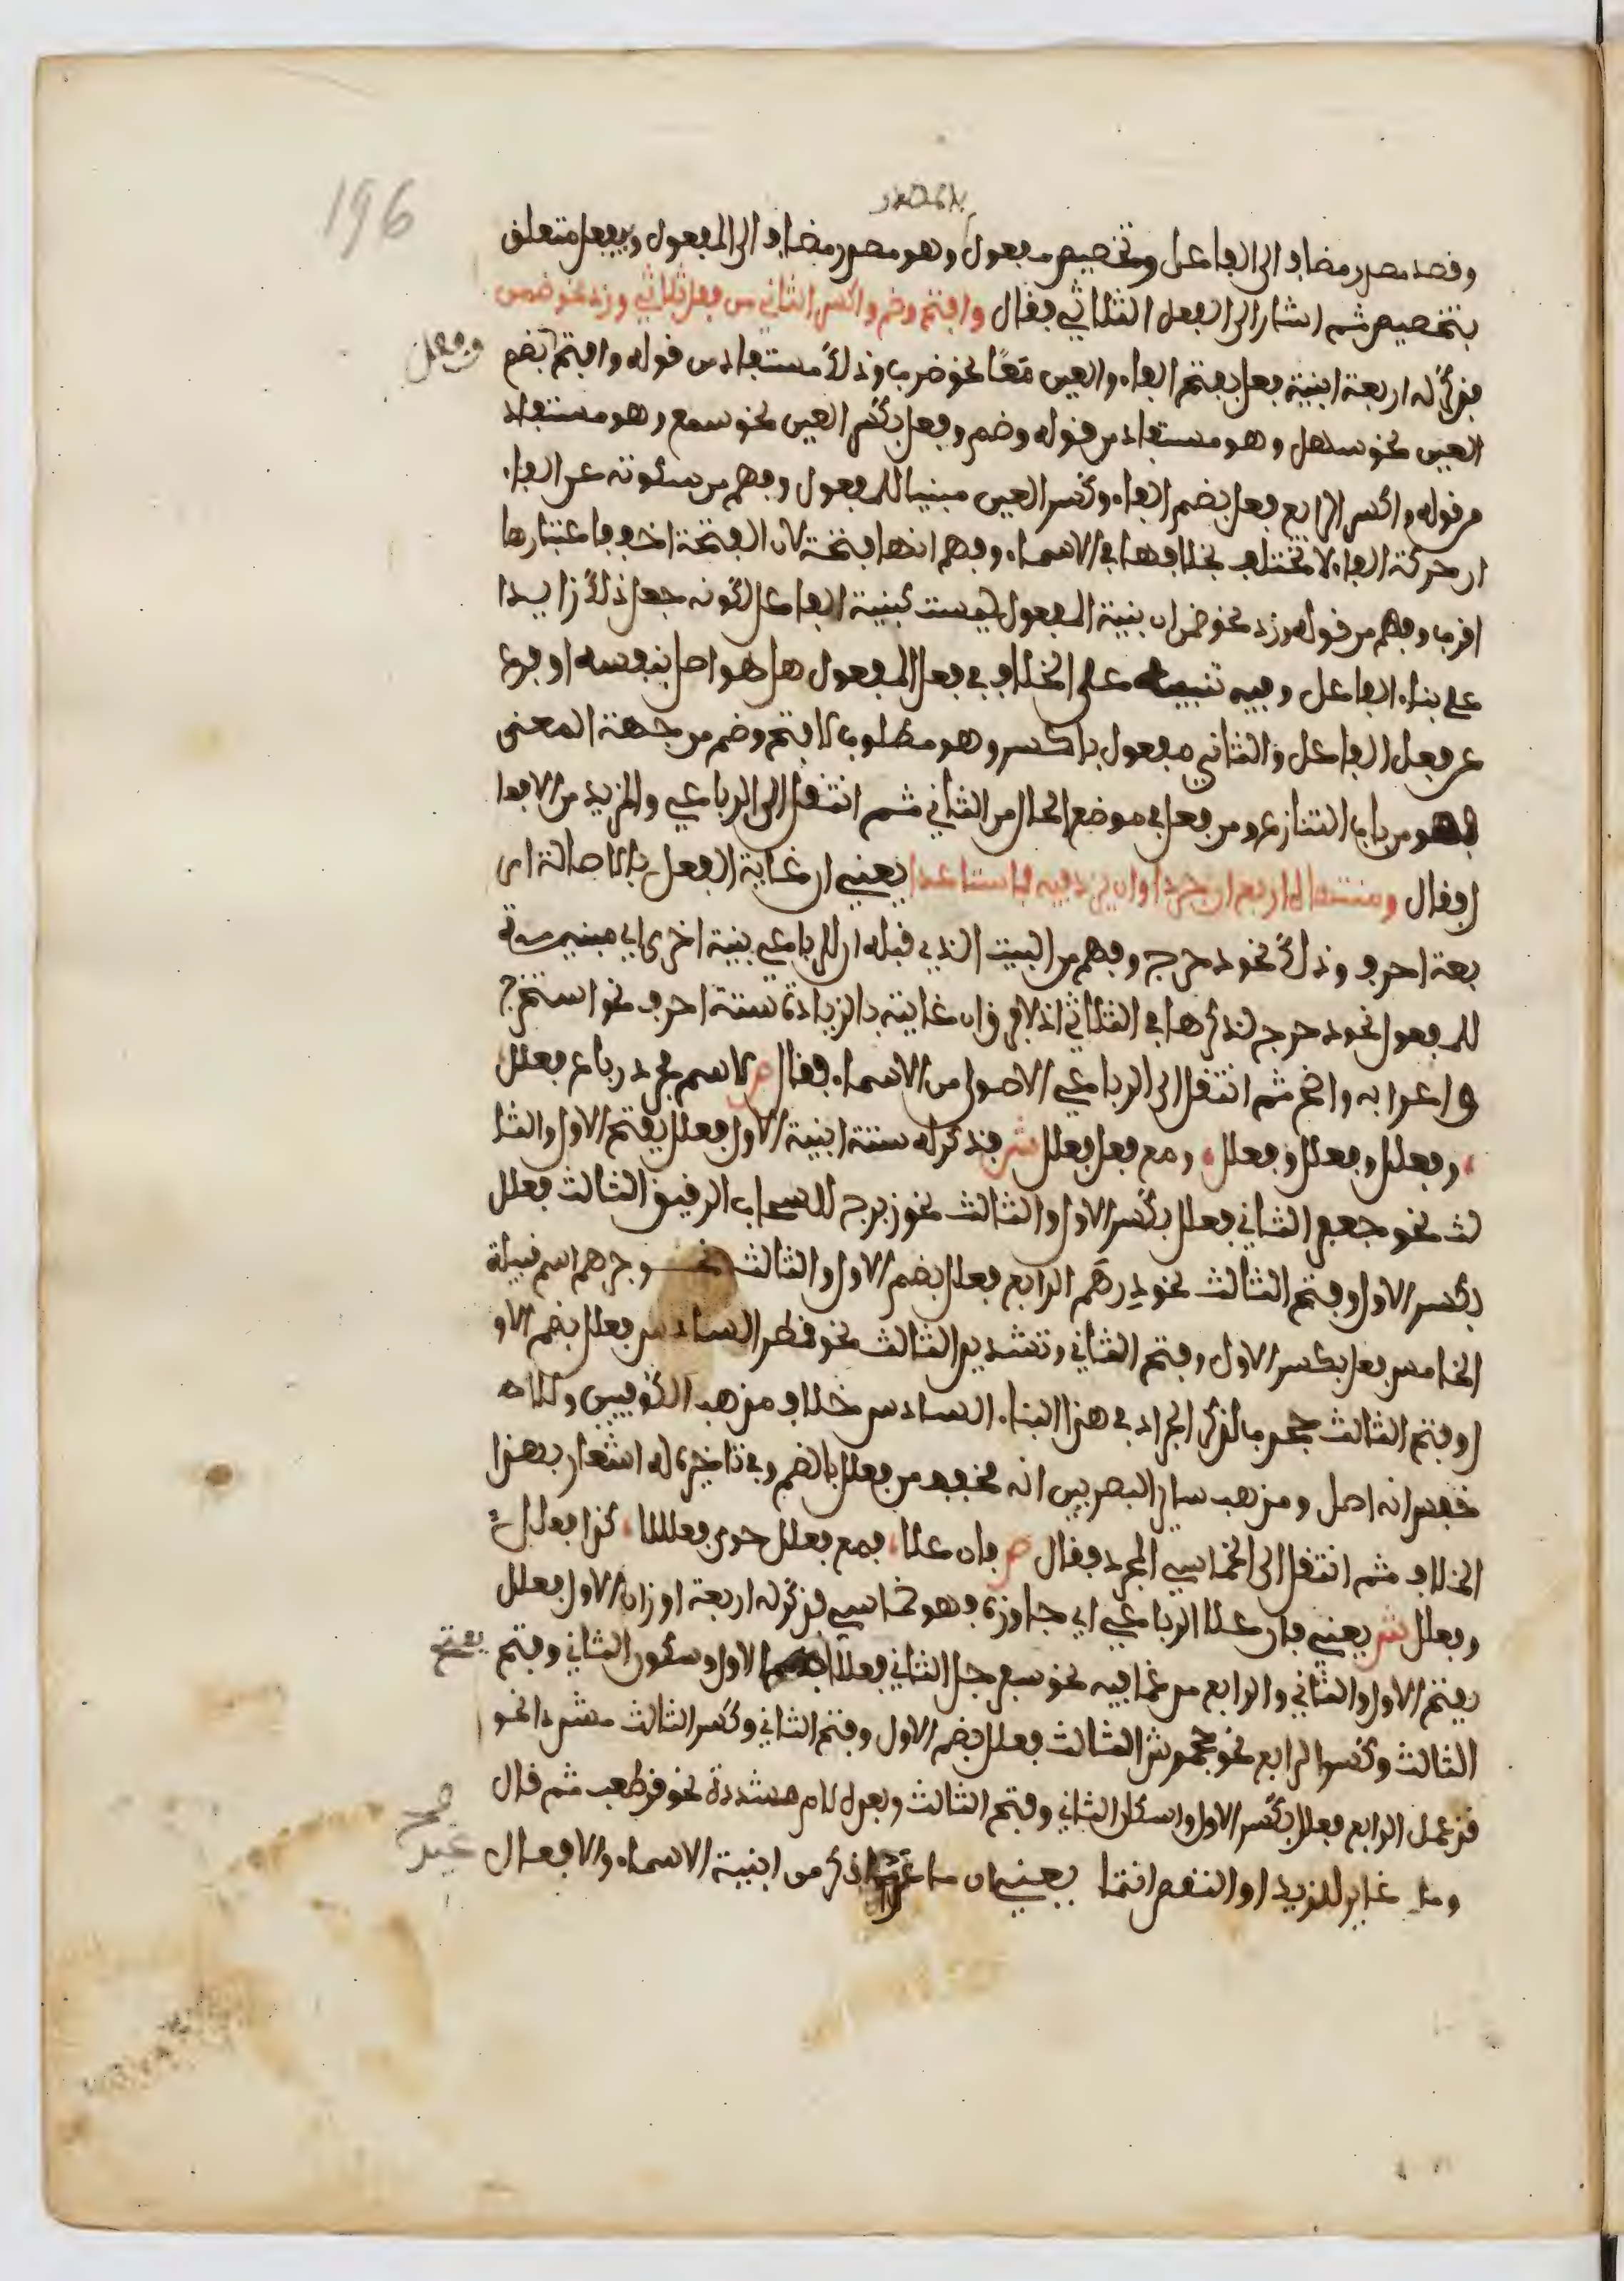 196
وقصد مصدر مضاف الى الفاعل وتخصيص مفعول وهو مصدر مضاف الى المفعول وبفعل متعلق
بتخصيص ثم اشار الى الفعل الثلاثي فقال وافتح وضم واكسر الثاني من فعل ثلاثي وزد نحو ضمن
فذكر له اربعة ابنية فعل بفتح الفاء والعين مَعًا نحو ضرب وذلك مستفاد من قوله وافتح بضم
وفعل
العين نحو سهل وهو مستفاد من قوله وضم وفعل بكسر العين نحو سمع وهو مستفاد
من قوله واكسر الرابع فعل بضم الفاء وكسر العين مبنيا للمفعول وفهم من سكوته عن الفاء
ان حركة الفاء لا تختلف بخلافها في الاسماء وفهم انها فتحة لان الفتحة اخف فاعتبارها
اقرب وفهم من قوله وزد نحو ضمن ان بنية المفعول ليست كبنية الفاعل لكونه جعل ذلك زايدا
على بناء الفاعل وفيه تنبيه على الخلاف في فعل المفعول هل هو اصل بنفسه او فرع
عن فعل الفاعل والثاني مفعول باكسر وهو مطلوب لافتح وضم من جهة المعنى
فهو من باب التنازع ومن فعل في موضع الحال من الثاني ثم انتقل الى الرباعي والمزيد من الافعا
ل فقال ومنتهاه اربع ان جردا وان يزد فيه فما ستا عدا يعني ان غاية الفعل بالاصالة ار
بعة احرف وذلك نحو دحرج وفهم من البيت الذي قبله ان للرباعي بنية اخرى اي مبنية
للمفعول نحو دحرج لذكرها في الثلاثي اذ لا فرق وان غايته بالزيادة ستة احرف نحو استخرج
واعرابه واضح ثم انتقل الى الرباعي الاصول من الاسماء فقال ص لاسم مجرد رباع فعلل
وفعلل وفعلل وفعلل ومع فعل فعلل ش فذكر له ستة ابنية الاول فعلل بفتح الاول والثا
لث نحو جعفر الثاني فعلل بكسر الاول والثالث نحو زبرج للسحاب الرقيق الثالث فعلل
بكسر الاول وفتح الثالث نحو دِرهَم الرابع فعلل بضم الاول والثالث نحو جرهم اسم قبيلة
الخامس فعل بكسر الاول وفتح الثاني وتشديد الثالث نحو قطر السادس فعلل بضم الاو
ل وفتح الثالث جخدب لذكر الجراد في هذا البناء السادس خلاف مذهب الكوفيين والا
خفش انه اصل ومذهب ساير البصريين انه مخفف من فعلل بالضم وفي تاخيره له اشعار بهذا
الخلاف ثم انتقل الى الخماسي المجرد فقال ص فان علا فمع فعلل حوى فعلللا كذا فعلل
وفعلل ش يعني فان علا الرباعي اي جاوزه وهو خماسي فذكر له اربعة اوزان الاول فعلل
بفتح الاول والثاني والرابع مدغما فيه نحو سفرجل الثاني فعلل الاول وسكون الثاني وفتح
بفتح
الثالث وكسر الرابع نحو جحمرش الثالث فعلل بضم الاول وفتح الثاني وكسر الثالث مشددا نحو
قزعمل الرابع فعلل بكسر الاول واسكان الثاني وفتح الثالث وبعده لام مشددة نحو قرطعب ثم قال
وما غاير للزيد او النقص انتما يعني ان ما ذكر من ابنية الاسماء والافعال
صح
غير